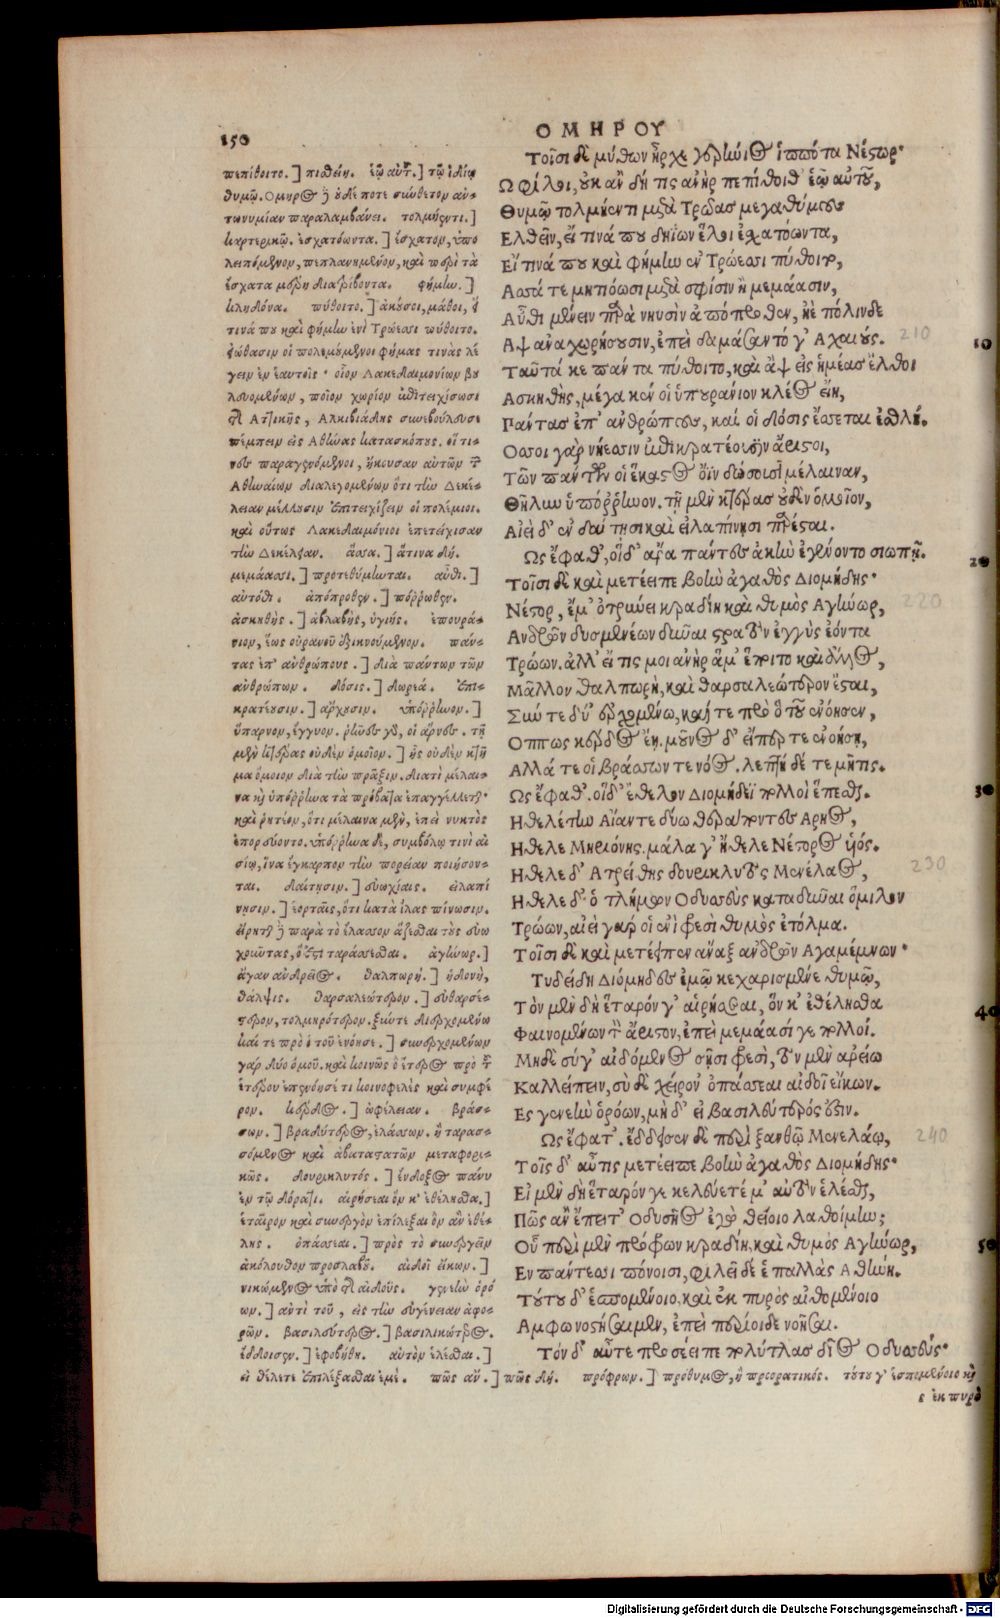 150
ΟΜΗΡΟΥ
πεπίθοιτο.] πισθείη. ἑῷ αὐτ.] τῷ ἰδίῳ
θυμῷ. Ὅμηρος ὃ οὐδέποτε σύνθετον ἀν-
τωνυμίαν παραλαμβάνει. τολμήεντι.]
καρτερικῷ. ἐσχατόωντα.] ἔσχατον, ὑπο
λειπόμενον, πεπλανημένον, καὶ περὶ τὰ
ἔσχατα μέρη διατρίβοντα. φήμιω.]
κληδόνα. πύθοιτο.] ἀκούσοι, μάθοι, ἤ
τινά που καὶ φήμιω ἐνὶ Τρώεσσι πύθοιτο.
εἰώθασιν οἱ πολεμούμενοι φήμας τινὰς λέ
γειν ἐν ἑαυτοῖς· οἷον Λακεδαιμονίων βου
λευομένων, ποῖον χωρίον ἐπιτειχίσωσι
τῆς Ἀττικῆς, Ἀλκιβιάδης συνεβούλευσε
πέμπειν εἰς Ἀθήνας κατασκόπους. οἵ τι-
νες παραγενόμενοι, ἤκουσαν αὐτῶν τῶν
Ἀθηναίων διαλεγομένων ὅτι τὴν Δεκέ-
λειαν μέλλουσιν ἐπιτειχίζειν οἱ πολέμιοι.
καὶ οὕτως Λακεδαιμόνιοι ἐπετείχισαν
τὴν Δεκέλειαν. ἅσσα.] ἅτινα δή.
μεμάασι.] προτεθύμηνται. αὖθι.]
αὐτόθι. ἀπόπροθεν.] πόρρωθεν.
ἀσκηθής.] ἀβλαβής, ὑγιής. ἐπουρά-
νιον, ἕως οὐρανοῦ διικνούμενον. πάν-
τας ἐπ' ἀνθρώπους.] διὰ πάντων τῶν
ἀνθρώπων. δόσις.] δωρεά. ἐπι-
κρατέουσιν.] ἄρχουσιν. ὑπόρρηνον.]
ὕπαρνον, ἔγγυον. ῥῆνες γὰρ, οἱ ἄρνες. τῇ
μὲν κτέρας οὐδὲν ὁμοῖον.] ἧς οὐδὲν κτῆ
μα ὅμοιον διὰ τὴν πρᾶξιν. διατὶ μέλαι-
να καὶ ὑπόρρηνα τὰ πρόβατα ἐπαγγέλλεται·
καὶ ῥητέον, ὅτι μέλαινα μὲν, ἐπεὶ νυκτὸς
ἐπορεύοντο. ὑπόρρηνα δὲ, συμβόλῳ τινὶ αἰ
σίῳ, ἵνα ἔγκαρπον τὴν πορείαν ποιήσον-
ται. δαίτῃσιν.] εὐωχίαις. εἰλαπί
νῃσιν.] ἑορταῖς, ὅτι κατὰ ἴλας πίνωσιν.
ἄγαν ἀνδρεῖος. θαλπωρή.] ἡδονὴ,
θάλψις. θαρσαλεώτερον.] εὐθαρσέ-
στερον, τολμηρότερον. ξύντε δύ' ἐρχομένω
καί τε πρὸ ὃ τοῦ ἐνόησε.] συνερχομένων
γὰρ δύο ὁμοῦ. καὶ κοινῶς ὁ ἕτερος πρὸ τοῦ
ἑτέρου ἐπενόησέ τι κοινωφελὲς καὶ συμφέ
ρον. κέρδος.] ὠφέλειαν. βράσ-
σων.] βραδύτερος, ἐλάσσων. ἢ ταρασ-
σόμενος καὶ ἀκαταστατῶν μεταφορι-
κῶς. δουρικλυτός.] ἔνδοξος πάνυ
ἐν τῷ δόρατι. αἱρήσεαι ὅν κ' ἐθέλησθα.]
ἑταῖρον καὶ συνεργὸν ἐπίλεξαι ὃν ἂν ἐθέ-
λῃς. ὀπάσσεαι.] πρὸς τὸ συνεργεῖν
ἀκόλουθον προσλαβοῦ. αἰδοῖ εἴκων.]
νικώμενος ὑπὸ τῆς αἰδοῦς. γενεὴν ὁρό
ων.] ἀντὶ τοῦ, εἰς τὴν εὐγένειαν ἀφο-
ρῶν. βασιλεύτερος.] βασιλικώτερος.
ἔδδεισεν.] ἐφοβήθη. αὐτὸν ἑλέσθαι.]
εἰ θέλετε ἐπιλέξασθαι ἐμέ. πῶς ἄν.] πῶς δή. πρόφρων.] πρόθυμος, ἢ προορατικός. τούτου γ' ἑσπομένοιο καὶ
ἐκ πυρὸ
Τοῖσι δὲ μύθων ἦρχε γερήνιος ἱππότα Νέστωρ·
Ω φίλοι, οὐκ ἂν δή τις ἀνὴρ πεπίθοιθ' ἑῷ αὐτοῦ,
Θυμῷ τολμήεντι μετὰ Τρῶας μεγαθύμους
Ελθεῖν, εἴ τινά που δηΐων ἕλοι ἐσχατόωντα,
Εἴ τινά που καὶ φῆμιν ἐν Τρώεσσι πύθοιτο,
Ασσά τε μητιόωσι μετὰ σφίσιν ἢ μεμάασιν,
Αὖθι μένειν παρὰ νηυσὶν ἀπόπροθεν, ἠὲ πόλινδε
Αψ ἀναχωρήσουσιν, ἐπεὶ δαμάσαντό γ' Αχαιούς.
Ταῦτά κε πάντα πύθοιτο, καὶ ἂψ εἰς ἡμέας ἔλθοι
Ασκηθής, μέγα κέν οἱ ὑπουράνιον κλέος εἴη,
Πάντας ἐπ' ἀνθρώπους, καί οἱ δόσις ἔσσεται ἐσθλή.
Οσσοι γὰρ νήεσσιν ἐπικρατέουσιν ἄριστοι,
Τῶν πάντων οἱ ἕκαστος ὄϊν δώσουσι μέλαιναν,
Θῆλιω ὑπόρρηνον. τῇ μὲν κτέρας οὐδὲν ὁμοῖον,
Αἰεὶ δ' ἐν δαίτῃσι καὶ εἰλαπίνῃσι παρέσται.
Ως ἔφαθ', οἱ δ' ἄρα πάντες ἀκὴν ἐγένοντο σιωπῇ.
Τοῖσι δὲ καὶ μετέειπε βοὴν ἀγαθὸς Διομήδης·
Νέστορ, ἔμ' ὀτρύνει κραδίη καὶ θυμὸς Αγήνωρ,
Ανδρῶν δυσμενέων δῦναι στρατὸν ἐγγὺς ἐόντα
Τρώων. ἀλλ' εἴ τίς μοι ἀνὴρ ἅμ' ἕποιτο καὶ ἄλλος,
Μᾶλλον θαλπωρή, καὶ θαρσαλεώτερον ἔσται,
Σύν τε δύ' ἐρχομένω, καί τε πρὸ ὃ τοῦ ἐνόησεν,
Οππως κέρδος ἔῃ. μοῦνος δ' εἴπέρ τε νοήσῃ,
Αλλά τε οἱ βράσσων τε νόος. λεπτὴ δέ τε μῆτις.
Ως ἔφαθ'. οἱ δ' ἔθελον Διομήδεϊ πολλοὶ ἕπεσθαι.
Ηθελέτην Αἴαντε δύω θεράποντες Αρηος,
Ηθελε Μηριόνης. μάλα γ' ἤθελε Νέστορος υἱός.
Ηθελε δ' Ατρείδης δουρικλυτὸς Μενέλαος,
Ηθελε δ' ὁ τλήμων Οδυσσεὺς καταδῦναι ὅμιλον
Τρώων, αἰεὶ γάρ οἱ ἐνὶ φρεσὶ θυμὸς ἐτόλμα.
Τοῖσι δὲ καὶ μετέειπεν ἄναξ ἀνδρῶν Αγαμέμνων·
Τυδείδη Διόμηδες ἐμῷ κεχαρισμένε θυμῷ,
Τὸν μὲν δὴ ἕταρόν γ' αἱρήσεαι, ὅν κ' ἐθέλησθα
Φαινομένων τὸν ἄριστον, ἐπεὶ μεμάασί γε πολλοί.
Μηδὲ σύ γ' αἰδόμενος σῇσι φρεσὶ, τὸν μὲν ἀρείω
Καλλείπειν, σὺ δὲ χείρον' ὀπάσσεαι αἰδοῖ εἴκων.
Ες γενεὴν ὁρόων, μὴ δ' εἰ βασιλεύτερός ἐστιν.
Ως ἔφατ'. ἔδδεισεν δὲ περὶ ξανθῷ Μενελάῳ,
Τοῖς δ' αὖτις μετέειπε βοὴν ἀγαθὸς Διομήδης·
Εἰ μὲν δὴ ἕταρόν γε κελεύετέ μ' αὐτὸν ἑλέσθαι,
Πῶς ἂν ἔπειτ' Οδυσῆος ἐγὼ θείοιο λαθοίμην;
Οὗ περὶ μὲν πρόφρων κραδίη, καὶ θυμὸς Αγήνωρ,
Εν πάντεσσι πόνοισι, φιλεῖ δέ ἑ παλλὰς Αθήνη.
Τούτου δ' ἑσπομένοιο, καὶ ἐκ πυρὸς αἰθομένοιο
Αμφω νοστήσαιμεν, ἐπεὶ περίοιδε νοῆσαι.
Τὸν δ' αὖτε προσέειπε πολύτλας δῖος Οδυσσεύς·
10
20
30
40
50
210
220
230
240
Digitalisierung gefördert durch die Deutsche Forschungsgemeinschaft - DFG